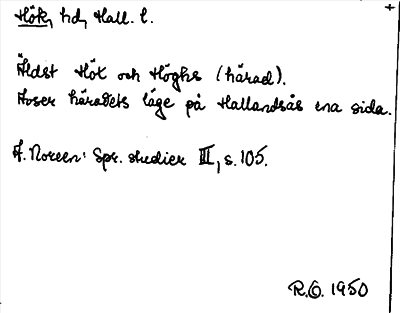 Hök, hd, Hall. l.
Äldst Hök och Höghs (härad).
Avser häradets läge på Hallandsås ena sida.
A. Noreen: Spr. studier III, s. 105.
R.G. 1950